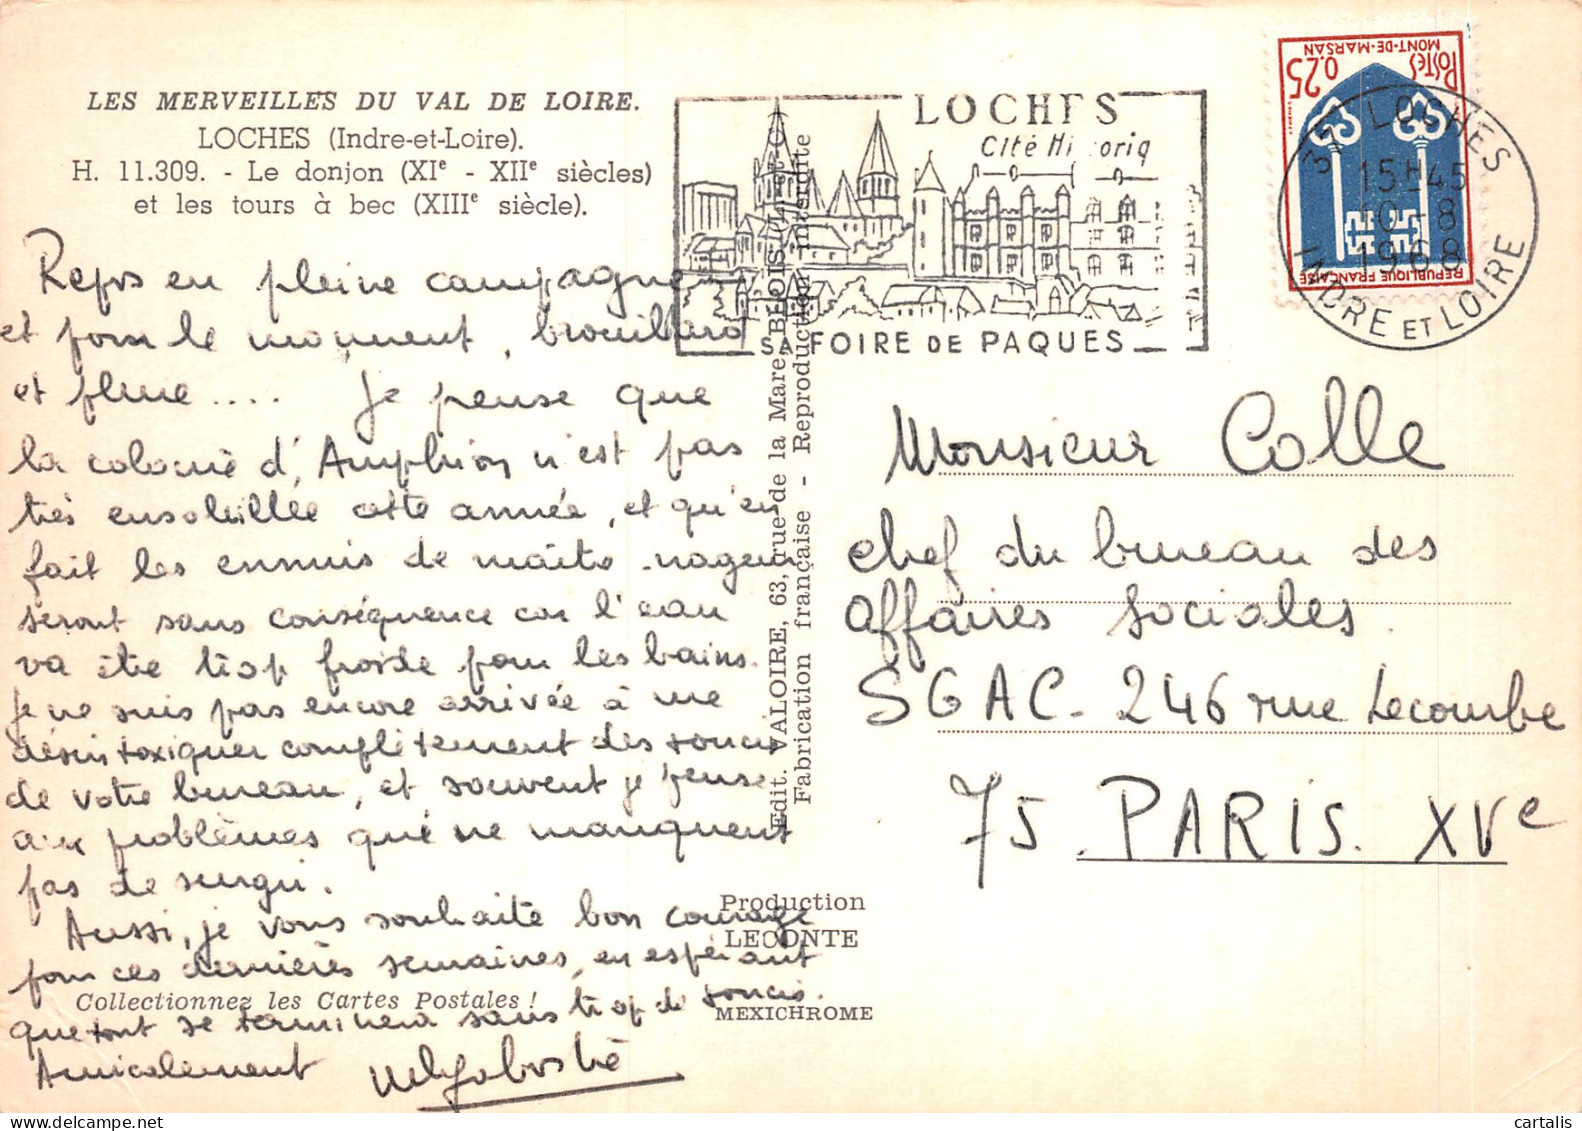 LES MERVEILLES DU VAL DE LOIRE.
LOCHES (Indre-et-Loire).
H. 11.309. - Le donjon (XIe - XIIe siècles)
et les tours à bec (XIIIe siècle).
Repos en pleine campagne
et pour le moment, brouillard
et pluie .... Je pense que
la colonie d'Amphion n'est pas
très ensoleillée cette année, et qu'en
fait les ennuis de maître-nageur
seront sans conséquence car l'eau
va être trop froide pour les bains.
Je ne suis pas encore arrivée à me
désintoxiquer complètement des soucis
de votre bureau, et souvent je pense
aux problèmes qui ne manquent
pas de surgir.
Aussi, je vous souhaite bon courage
pour ces dernières semaines, en espérant
que tout se terminera sans trop de soucis.
Amicalement
Collectionnez les Cartes Postales !
Edit. VALOIRE, 63, rue de la Mare, BLOIS (L.-et-C.)
Fabrication française - Reproduction interdite
Production
LECONTE
MEXICHROME
LOCHES
Cité Historiq
SA FOIRE DE PAQUES
POSTES
0,25
MONT-DE-MARSAN
REPUBLIQUE FRANÇAISE
37 LOCHES
15H45
10-8
1968
INDRE ET LOIRE
Monsieur Colle
chef du bureau des
affaires sociales
SGAC - 246 rue Lecourbe
75. PARIS. XVe
cartalis
www.delcampe.net